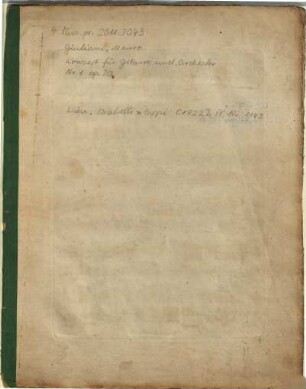 4 Mus. pr. 2011.3043
Giuliani, Mauro
Konzert für Gitarre und Orchester
Nr. 1 op. 30
Wien, Diabelli & Cappi [1822], Pl. Nr. 1147